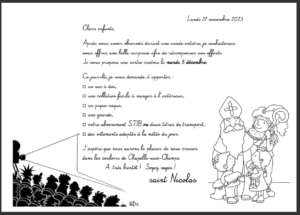 Lundi 27 novembre 2023
Chers enfants,
Après vous avoir observés durant une année entière, je souhaiterais
vous offrir une belle surprise afin de récompenser vos efforts.
Je vous propose une sortie cinéma le mardi 5 décembre.
Ce jour-là, je vous demande d'apporter :
un sac à dos,
une collation facile à manger à l'extérieur,
un pique-nique,
une gourde,
votre abonnement STIB ou deux titres de transport,
des vêtements adaptés à la météo du jour.
J'espère que nous aurons le plaisir de nous croiser
dans les couloirs de Chapelle-aux-Champs.
À très bientôt ! Soyez sages !
saint Nicolas